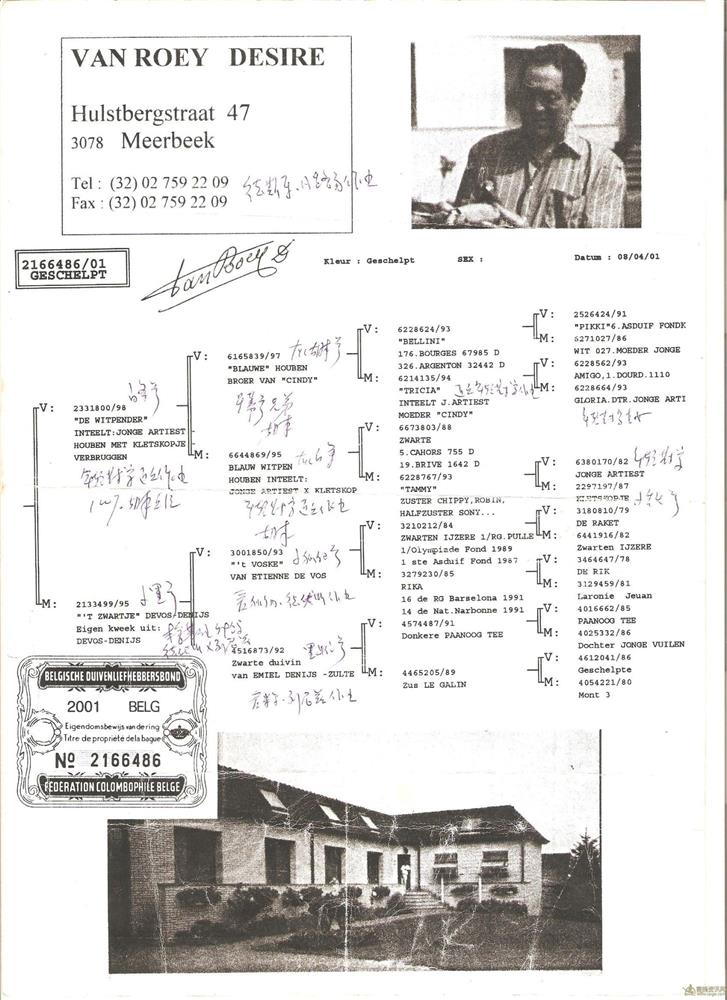 VAN ROEY DESIRE
Hulstbergstraat 47
3078 Meerbeek
Tel : (32) 02 759 22 09
Fax : (32) 02 759 22 09
2166486/01
GESCHELPT
Van Roey D
Kleur : Geschelpt
SEX :
Datum : 08/04/01
V:
2331800/98
"DE WITPENDER"
INTEELT:JONGE ARTIEST
HOUBEN MET KLETSKOPJE
VERBRUGGEN
M:
2133499/95
"'T ZWARTJE" DEVOS-DENIJS
Eigen kweek uit:
DEVOS-DENIJS
V:
6165839/97
"BLAUWE" HOUBEN
BROER VAN "CINDY"
M:
6644869/95
BLAUW WITPEN
HOUBEN INTEELT:
JONGE ARTIEST X KLETSKOP
V:
3001850/93
"'t VOSKE"
VAN ETIENNE DE VOS
M:
4516873/92
Zwarte duivin
van EMIEL DENIJS -ZULTE
V:
6228624/93
"BELLINI"
176.BOURGES 67985 D
326.ARGENTON 32442 D
M:
6214135/94
"TRICIA"
INTEELT J.ARTIEST
MOEDER "CINDY"
V:
6673803/88
ZWARTE
5.CAHORS 755 D
19.BRIVE 1642 D
M:
6228767/93
"TAMMY"
ZUSTER CHIPPY,ROBIN,
HALFZUSTER SONY...
V:
3210212/84
ZWARTEN IJZERE 1/RG.PULLE
1/Olympiade Fond 1989
1 ste Asduif Fond 1987
M:
3279230/85
RIKA
16 de RG Barselona 1991
14 de Nat.Narbonne 1991
V:
4574487/91
Donkere PAANOOG TEE
M:
4465205/89
Zus LE GALIN
V:
2526424/91
"PIKKI"6.ASDUIF FONDK
M:
5271027/86
WIT 027.MOEDER JONGE
V:
6228562/93
AMIGO,1.DOURD.1110
M:
6228664/93
GLORIA.DTR.JONGE ARTI
V:
6380170/82
JONGE ARTIEST
M:
2297197/87
KLETSKOPJE
V:
3180810/79
DE RAKET
M:
6441916/82
Zwarten IJZERE
V:
3464647/78
DE RIK
M:
3129459/81
Laronie Jeuan
V:
4016662/85
PAANOOG TEE
M:
4025332/86
Dochter JONGE VUILEN
V:
4612041/86
Geschelpte
M:
4054221/80
Mont 3
BELGISCHE DUIVENLIEFHEBBERSBOND
2001 BELG
Eigendomsbewijs van de ring
Titre de propriété de la bague
Nº 2166486
FÉDÉRATION COLOMBOPHILE BELGE